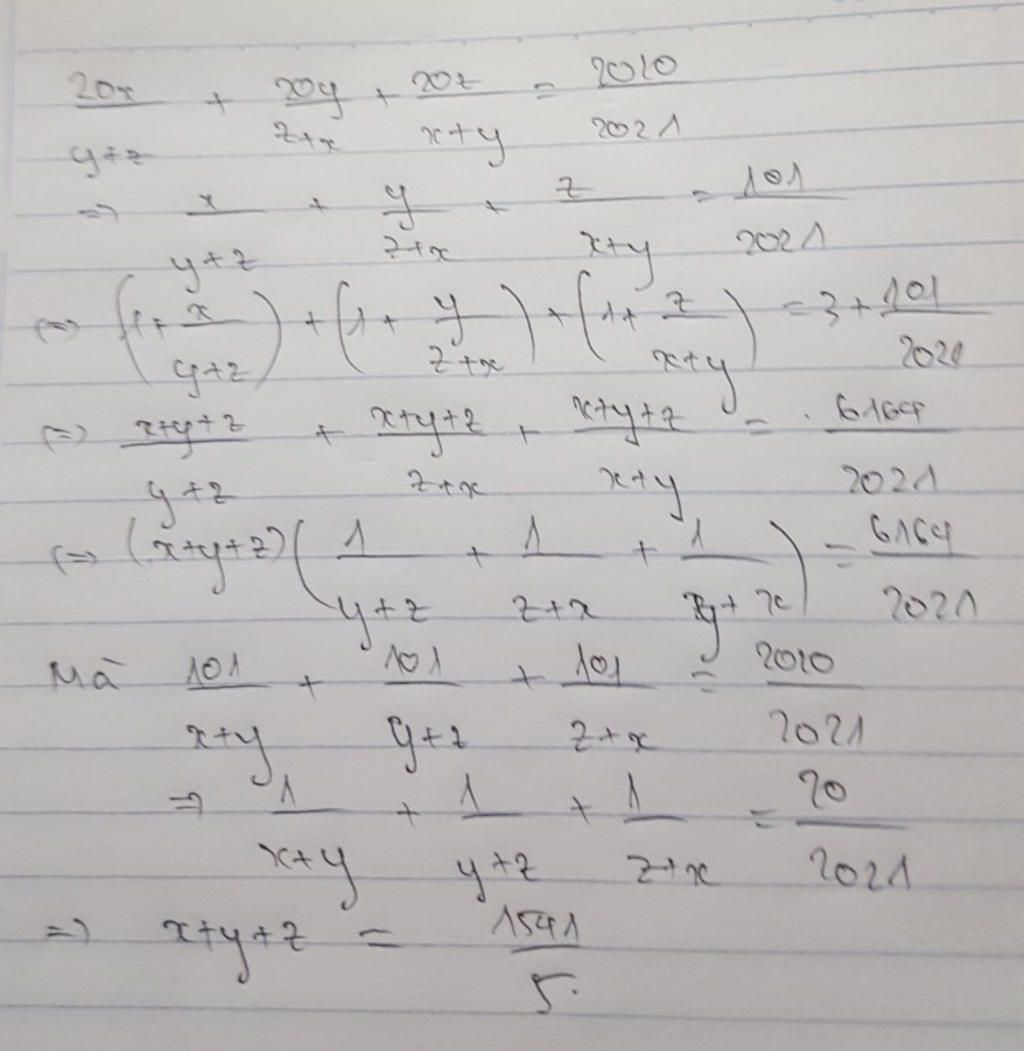 20x/(y+z) + 20y/(z+x) + 20z/(x+y) = 2020/2021
=> x/(y+z) + y/(z+x) + z/(x+y) = 101/2021
<=> (1 + x/(y+z)) + (1 + y/(z+x)) + (1 + z/(x+y)) = 3 + 101/2021
<=> (x+y+z)/(y+z) + (x+y+z)/(z+x) + (x+y+z)/(x+y) = 6164/2021
<=> (x+y+z)(1/(y+z) + 1/(z+x) + 1/(y+x)) = 6164/2021
Mà 101/(x+y) + 101/(y+z) + 101/(z+x) = 2020/2021
=> 1/(x+y) + 1/(y+z) + 1/(z+x) = 20/2021
=> x+y+z = 1541/5.